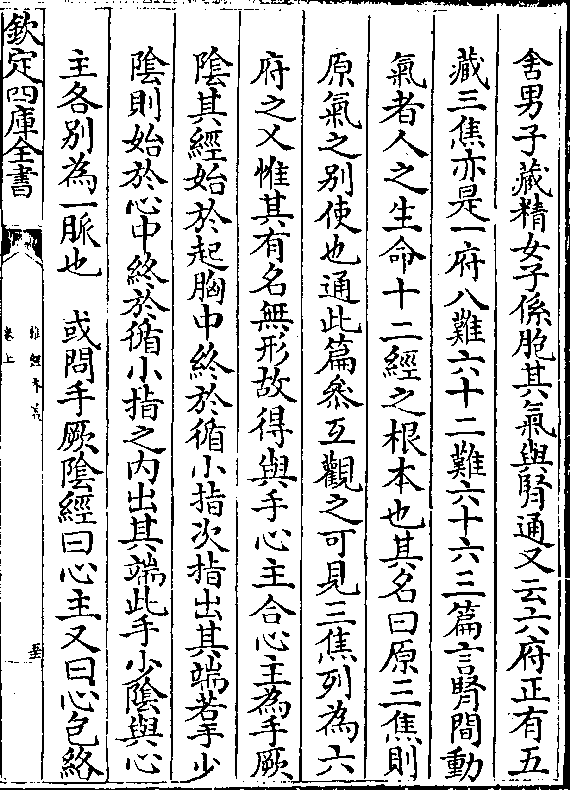 舍男子藏精女子係胞其氣與腎通又云六府正有五
藏三焦亦是一府八難六十二難六十六三篇言腎間動
氣者人之生命十二經之根本也其名曰原三焦則
原氣之别使也通此篇叅互觀之可見三焦列為六
府之义惟其有名無形故得與手心主合心主為手厥
隂其經始於起胸中終於循小指次指出其端若手少
隂則始於心中終於循小指之内出其端此手少隂與心
主各别為一脈也　或問手厥隂經曰心主又曰心包絡
欽定四庫全書
難經本義
卷上